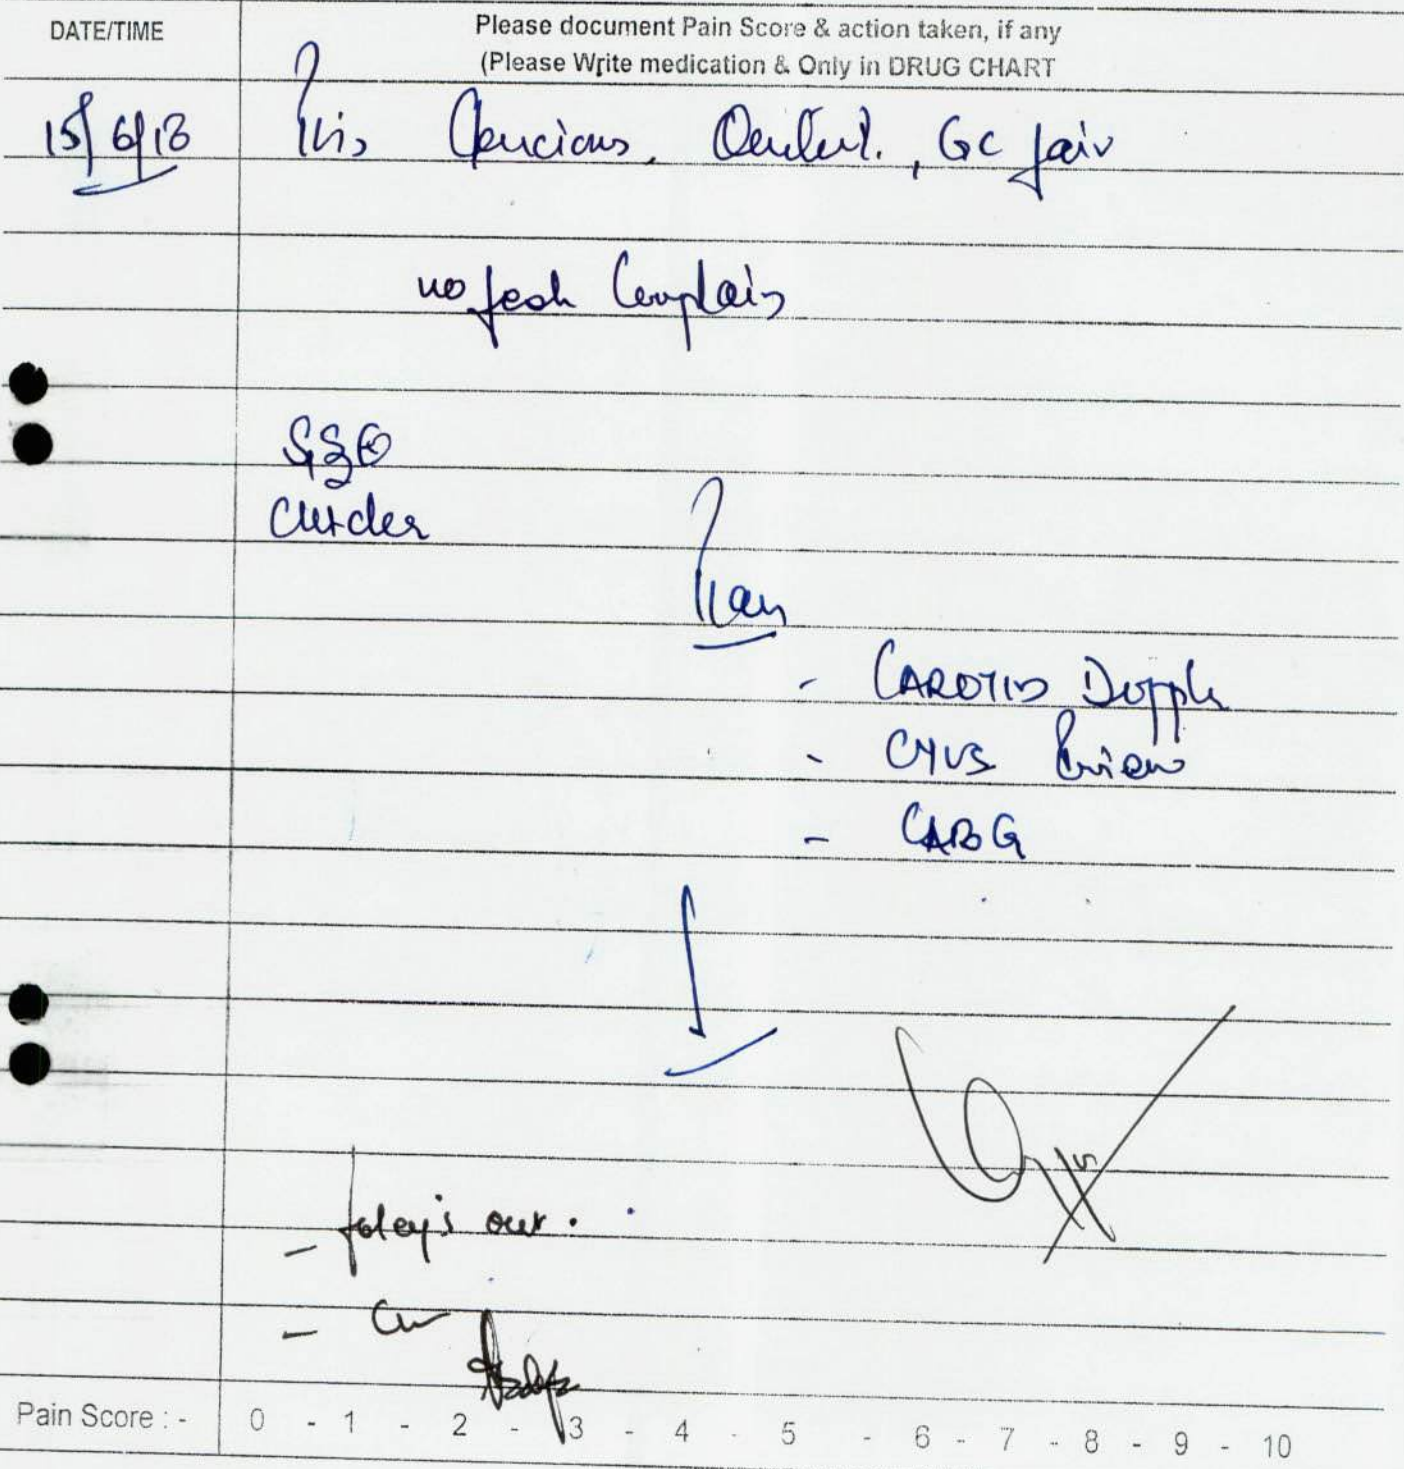 DATE/TIME
Please document Pain Score & action taken, if any
(Please Write medication & Only in DRUG CHART
15/6/18 Conscious, Oriented, GC fair
no fresh Complain
Plan
- CAROTID Dopple
- CTVS Review
- CABG
- foley's out.
Pain Score : - 0 - 1 - 2 - 3 - 4 - 5 - 6 - 7 - 8 - 9 - 10